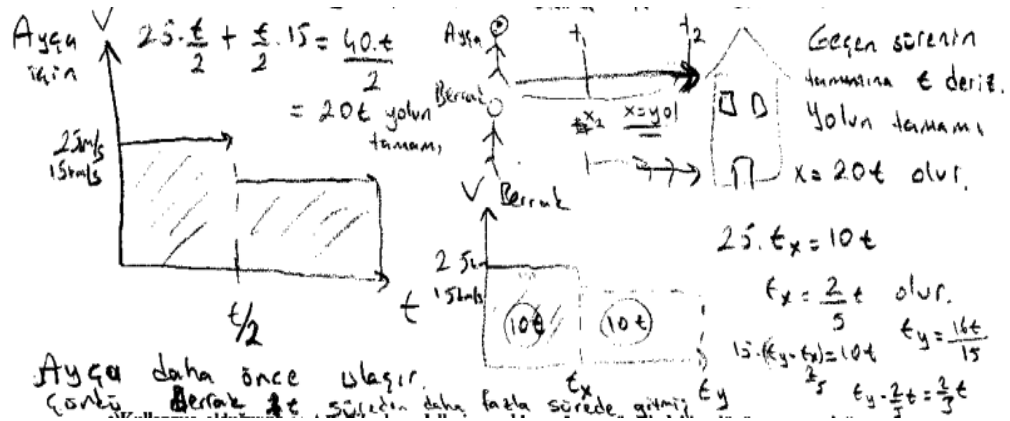 Ayça için
25·t/2 + t/2·15 = 40·t/2
= 20t yolun tamamı
V
25km/s
15km/s
t/2
t
Ayça
Berrak
t₂
x/2
x=yol
Geçen sürenin
tamamına t deriz.
Yolun tamamı
x=20t olur.
V Berrak
25
15km/s
10t
10t
tx
ty
25·tx=10t
tx=2/5 t olur.
15·(ty-tx)=10t
ty=16t/15
ty-2/5t=2/3t
Ayça daha önce ulaşır.
Çünkü Berrak t süreden daha fazla sürede gitmiş